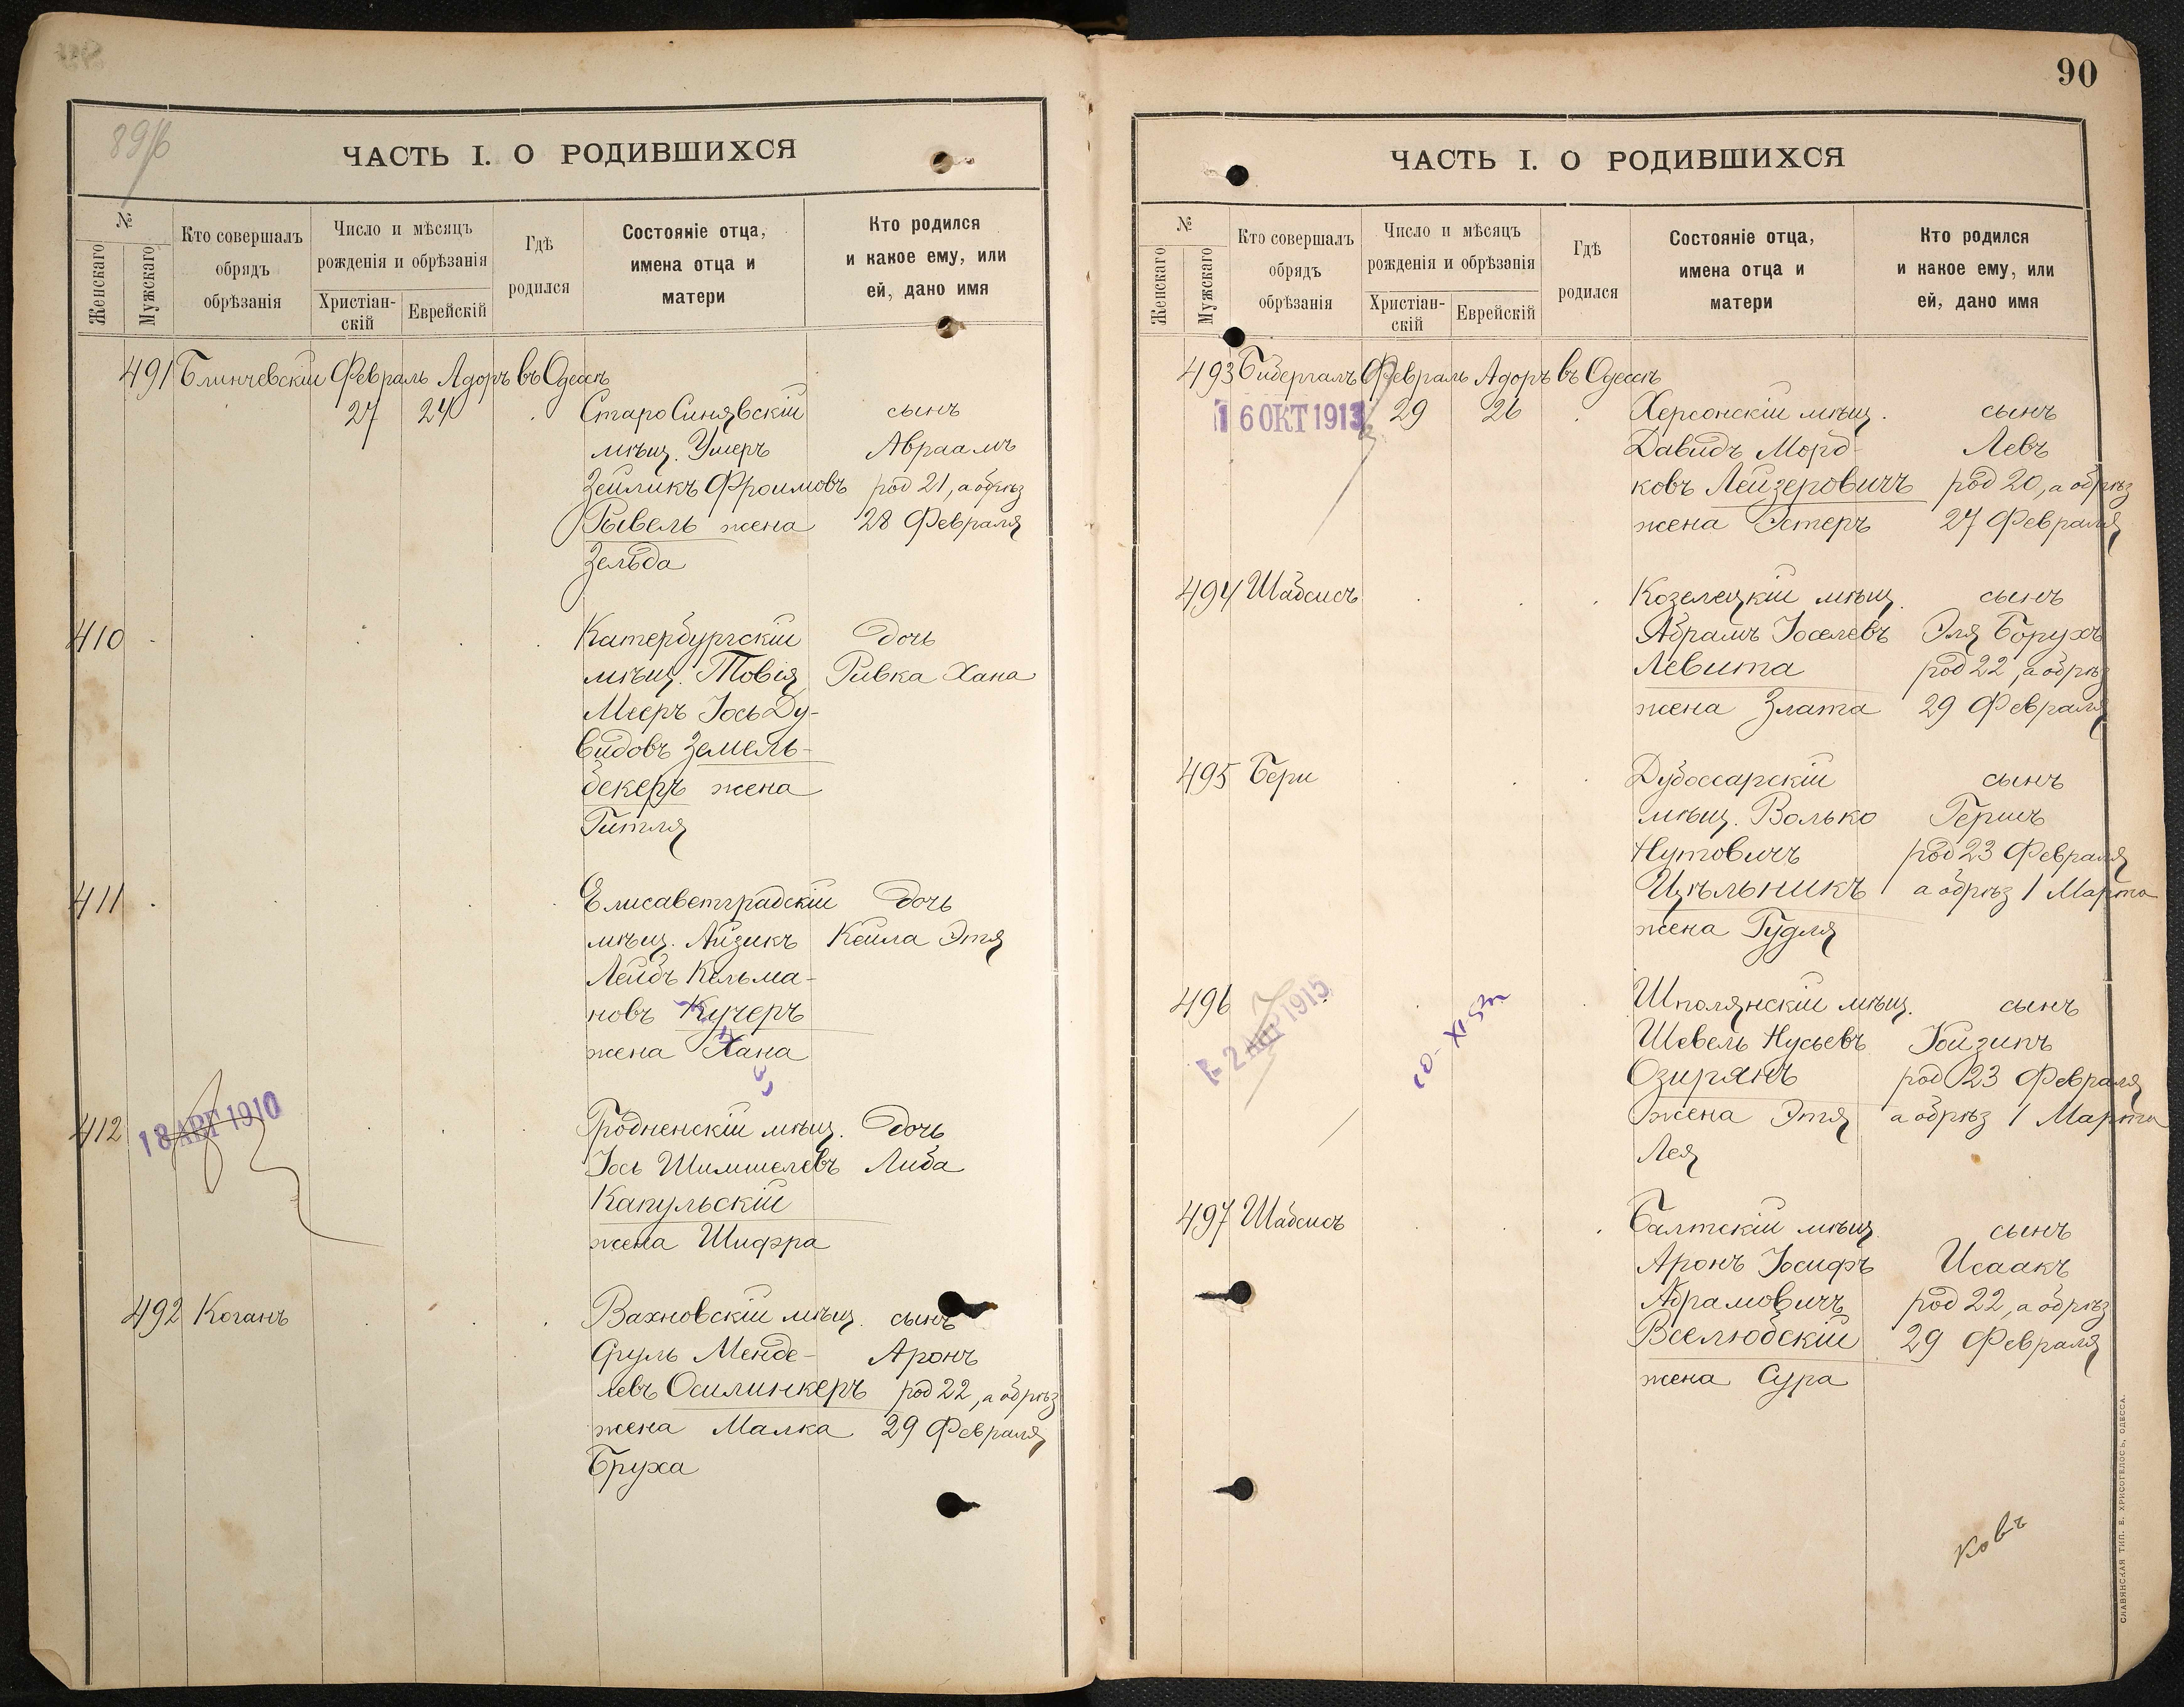 89/б
ЧАСТЬ I. О РОДИВШИХСЯ
№
Женскаго
Мужскаго
Кто совершалъ
обрядъ
обрѣзанія
Число и мѣсяцъ
рожденія и обрѣзанія
Христіан-
скій
Еврейскій
Гдѣ
родился
Состояніе отца,
имена отца и
матери
Кто родился
и какое ему, или
ей, дано имя
491 Блинчевскій Февраль Адоръ въ Одессѣ
27 24 СтароСинявскій сынъ
мѣщ. Умеръ Авраамъ
Зейликъ Фроимовъ род 21, а обрѣз
Рывель жена 28 Февраля
Зельда
410 Катербургскій дочь
мѣщ. Товія Ривка Хана
Мееръ Іось Ду-
видовъ Земель-
бекеръ жена
Гитля
411 Елисаветградскій дочь
мѣщ. Айзикъ Кейла Этя
Лейбъ Кельма-
новъ Кучеръ
жена Хана
412 18 АВГ 1910 Гродненскій мѣщ. дочь
Іось Шимшелевъ Либа
Капульскій
жена Шифра
492 Коганъ Вахновскій мѣщ. сынъ
Сруль Менде- Аронъ
левъ Осилинкеръ род 22, а обрѣз
жена Малка 29 Февраля
Бруха
90
ЧАСТЬ I. О РОДИВШИХСЯ
№
Женскаго
Мужскаго
Кто совершалъ
обрядъ
обрѣзанія
Число и мѣсяцъ
рожденія и обрѣзанія
Христіан-
скій
Еврейскій
Гдѣ
родился
Состояніе отца,
имена отца и
матери
Кто родился
и какое ему, или
ей, дано имя
493 Бибергалъ Февраль Адоръ въ Одессѣ
16 ОКТ 1913 29 26 Херсонскій мѣщ. сынъ
Давидъ Морд- Левъ
ковъ Лейзеровичъ род 20, а обрѣз
жена Эстеръ 27 Февраля
494 Шабсисъ Козелецкій мѣщ. сынъ
Абрамъ Іоселевъ Эля Борухъ
Левита род 22, а обрѣз
жена Злата 29 Февраля
495 Бери Дубоссарскій сынъ
мѣщ. Волько Гершъ
Нутовичъ род 23 Февраля
Цѣльникъ а обрѣз 1 Марта
жена Гудля
496 1915 Шполянскій мѣщ. сынъ
Шевель Нусьевъ Іойзипъ
Озирянъ род 23 Февраля
жена Этя а обрѣз 1 Марта
Лея
497 Шабсисъ Балтскій мѣщ. сынъ
Аронъ Іосифъ Исаакъ
Абрамовичъ род 22, а обрѣз
Вселюбскій 29 Февраля
жена Сура
ковъ
СЛАВЯНСКАЯ ТИП. Е. ХРИСОГЕЛОСЪ, ОДЕССА.